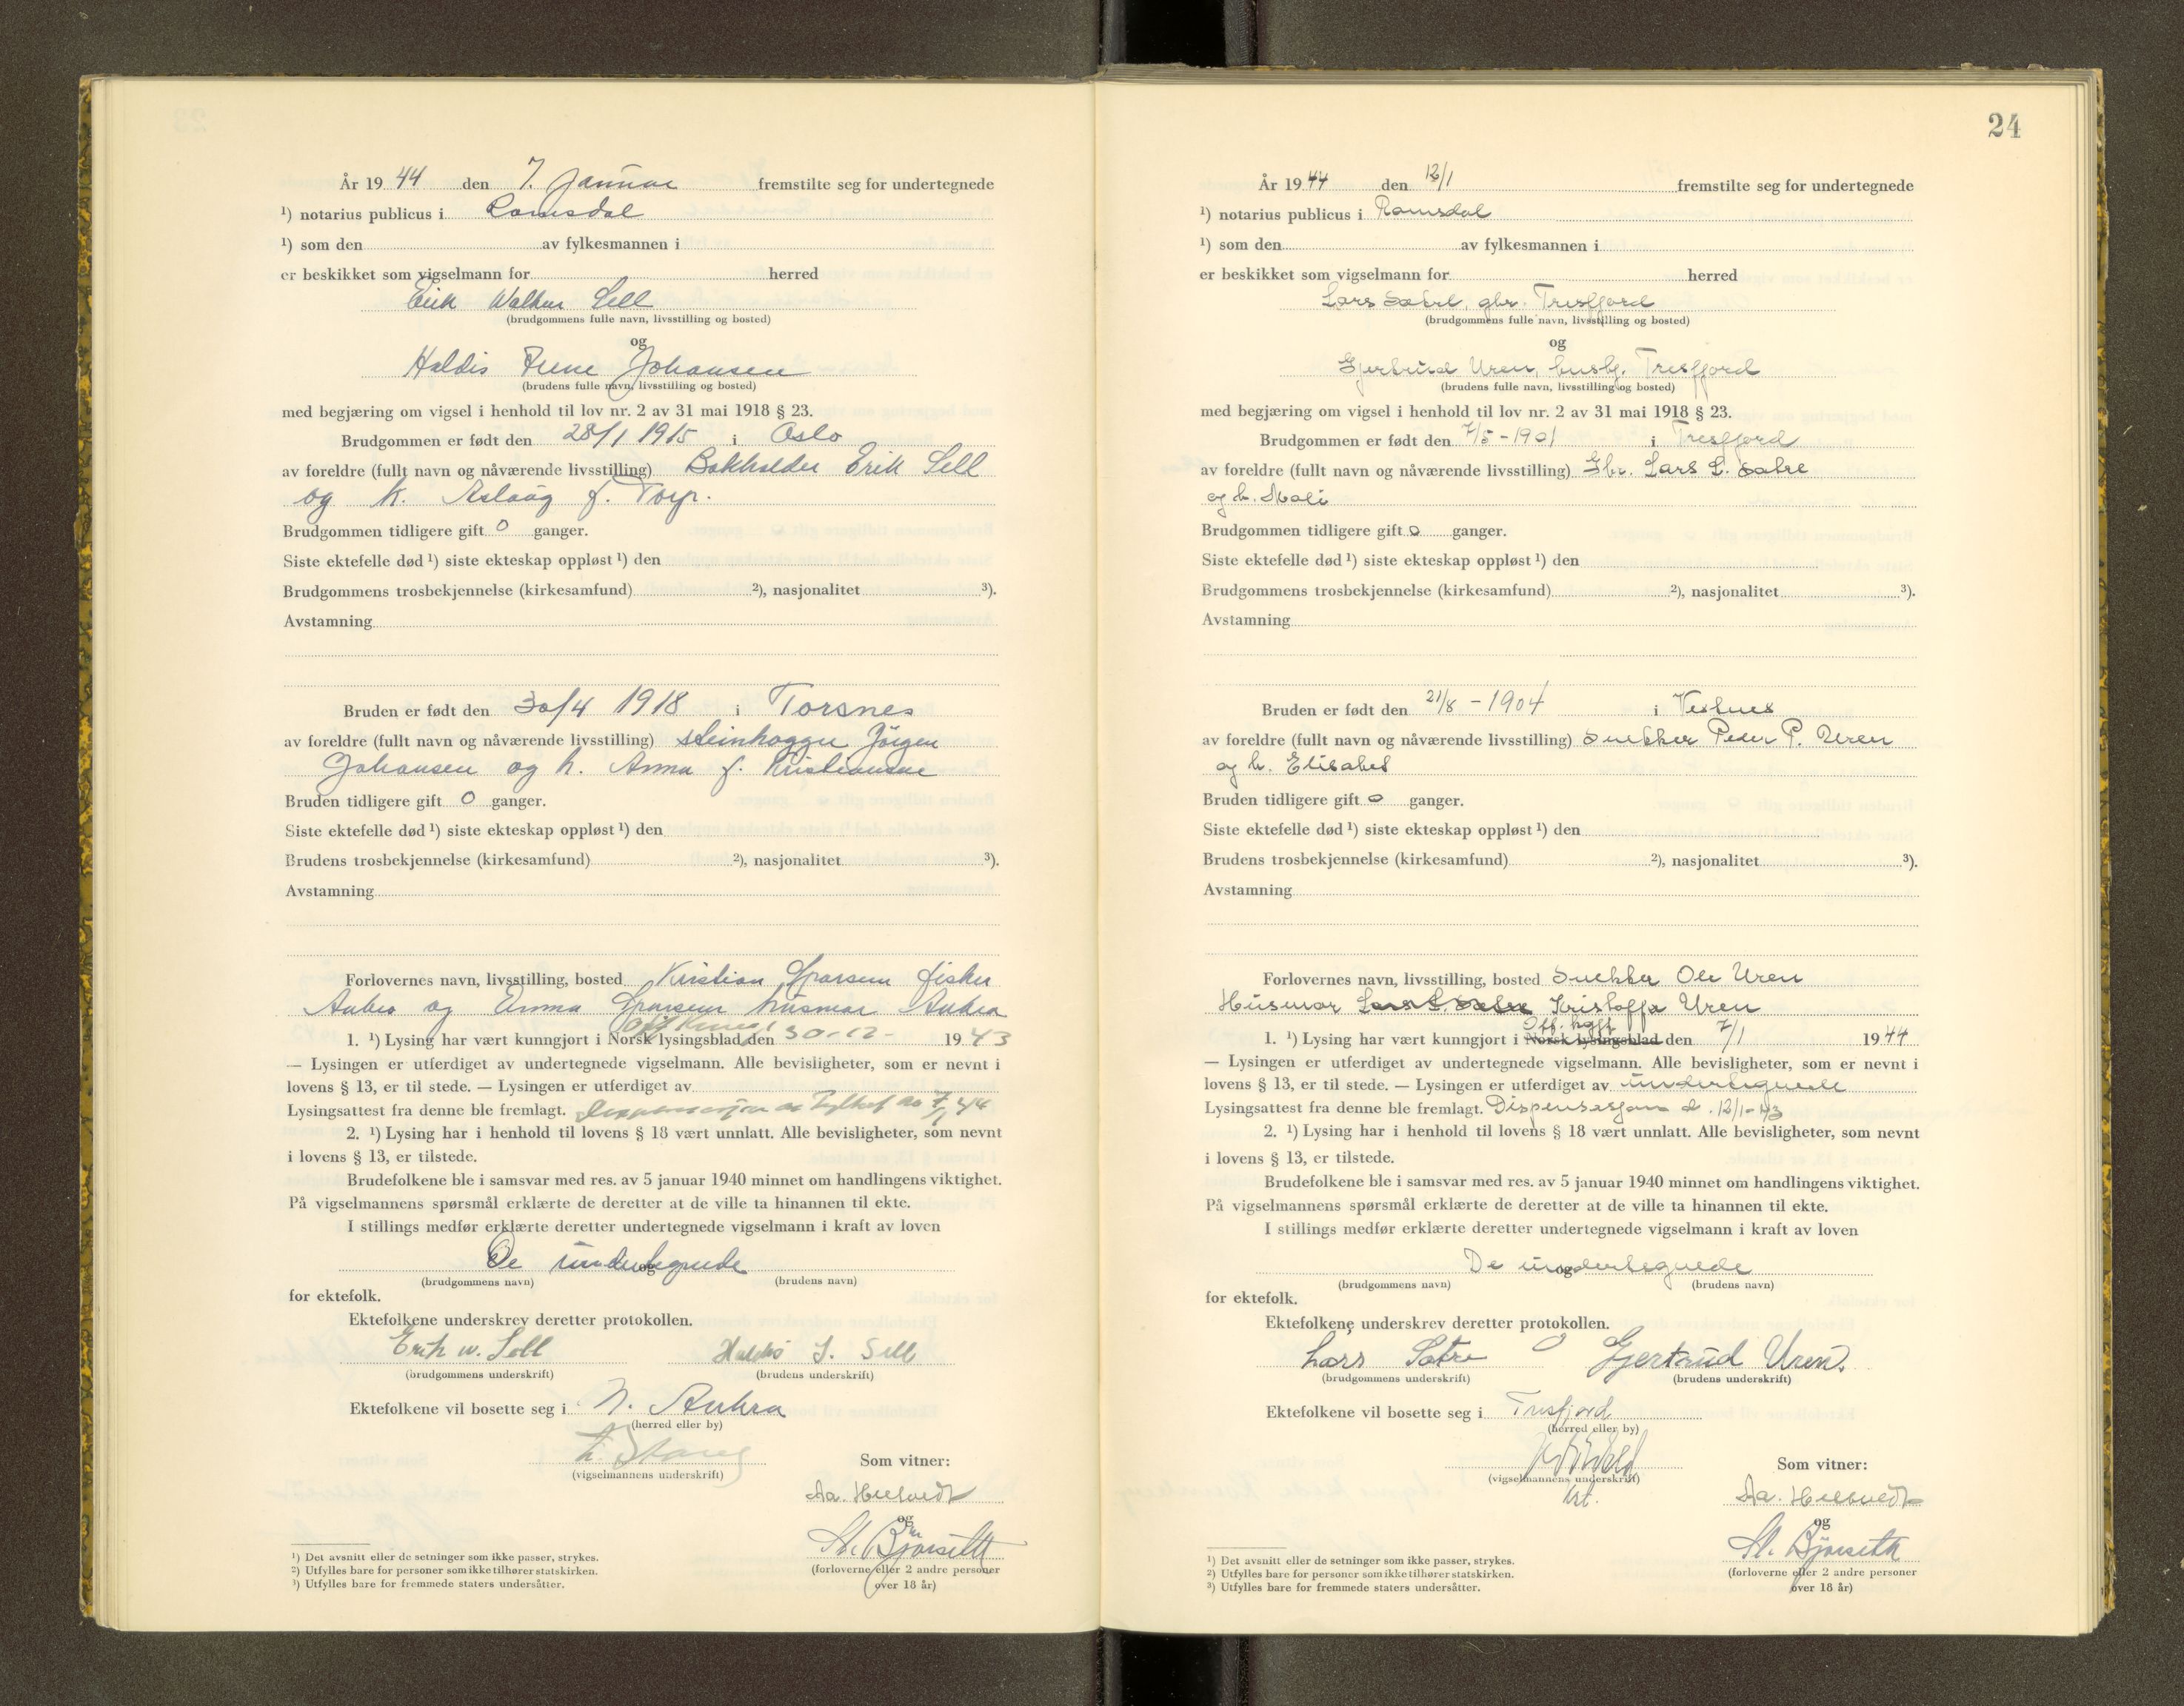 År 19 44 den 7. Januar fremstilte seg for undertegnede
¹) notarius publicus i Romsdal
¹) som den av fylkesmannen i
er beskikket som vigselmann for herred
Erik Sell
(brudgommens fulle navn, livsstilling og bosted)
og
Haldis Irene Johansen
(brudens fulle navn, livsstilling og bosted)
med begjæring om vigsel i henhold til lov nr. 2 av 31 mai 1918 § 23.
Brudgommen er født den 28/1 1915 i Oslo
av foreldre (fullt navn og nåværende livsstilling) Bokholder Erik Sell
og h. Aslaug f. Torp.
Brudgommen tidligere gift 0 ganger.
Siste ektefelle død ¹) siste ekteskap oppløst ¹) den
Brudgommens trosbekjennelse (kirkesamfund) ²), nasjonalitet ³).
Avstamning
Bruden er født den 30/4 1918 i Torsnes
av foreldre (fullt navn og nåværende livsstilling) steinhogger Jörgen
Johansen og h. Anna f. Kristiansen
Bruden tidligere gift 0 ganger.
Siste ektefelle død ¹) siste ekteskap oppløst ¹) den
Brudens trosbekjennelse (kirkesamfund) ²), nasjonalitet ³).
Avstamning
Forlovernes navn, livsstilling, bosted Kristian fisker
Aukra og husmor Aukra
1. ¹) Lysing har vært kunngjort i Norsk lysingsblad den 30-12- 19 43
— Lysingen er utferdiget av undertegnede vigselmann. Alle bevisligheter, som er nevnt i
lovens § 13, er til stede. — Lysingen er utferdiget av
Lysingsattest fra denne ble fremlagt. Dispensasjon av
2. ¹) Lysing har i henhold til lovens § 18 vært unnlatt. Alle bevisligheter, som nevnt
i lovens § 13, er tilstede.
Brudefolkene ble i samsvar med res. av 5 januar 1940 minnet om handlingens viktighet.
På vigselmannens spørsmål erklærte de deretter at de ville ta hinannen til ekte.
I stillings medfør erklærte deretter undertegnede vigselmann i kraft av loven
De undertegnede
og
(brudgommens navn) (brudens navn)
for ektefolk.
Ektefolkene underskrev deretter protokollen.
Erik W. Sell Haldis I. Sell
(brudgommens underskrift) (brudens underskrift)
Ektefolkene vil bosette seg i N. Aukra
(herred eller by)
(vigselmannens underskrift)
Som vitner:
Aa.
og
Bjørseth
(forloverne eller 2 andre personer
over 18 år)
¹) Det avsnitt eller de setninger som ikke passer, strykes.
²) Utfylles bare for personer som ikke tilhører statskirken.
³) Utfylles bare for fremmede staters undersåtter.
24
År 19 44 den fremstilte seg for undertegnede
¹) notarius publicus i Romsdal
¹) som den av fylkesmannen i
er beskikket som vigselmann for herred
Lars Sætre, gbr. Tresfjord
(brudgommens fulle navn, livsstilling og bosted)
og
Gjertrud Uren, husbg. Tresfjord
(brudens fulle navn, livsstilling og bosted)
med begjæring om vigsel i henhold til lov nr. 2 av 31 mai 1918 § 23.
Brudgommen er født den 7/5 - 1901 i Tresfjord
av foreldre (fullt navn og nåværende livsstilling) Gbr. Lars L. Sætre
og h. Mali
Brudgommen tidligere gift 0 ganger.
Siste ektefelle død ¹) siste ekteskap oppløst ¹) den
Brudgommens trosbekjennelse (kirkesamfund) ²), nasjonalitet ³).
Avstamning
Bruden er født den 21/8 - 1904 i Vestnes
av foreldre (fullt navn og nåværende livsstilling) Snekker Peder P. Uren
og h. Elisabet
Bruden tidligere gift 0 ganger.
Siste ektefelle død ¹) siste ekteskap oppløst ¹) den
Brudens trosbekjennelse (kirkesamfund) ²), nasjonalitet ³).
Avstamning
Forlovernes navn, livsstilling, bosted Snekker Ole Uren
Husmor Kristoffa Uren
Off. kgjt.
1. ¹) Lysing har vært kunngjort i Norsk lysingsblad den 7/1 19 44
— Lysingen er utferdiget av undertegnede vigselmann. Alle bevisligheter, som er nevnt i
lovens § 13, er til stede. — Lysingen er utferdiget av undertegnede
Lysingsattest fra denne ble fremlagt. Dispensasjon d. 12/1-43
2. ¹) Lysing har i henhold til lovens § 18 vært unnlatt. Alle bevisligheter, som nevnt
i lovens § 13, er tilstede.
Brudefolkene ble i samsvar med res. av 5 januar 1940 minnet om handlingens viktighet.
På vigselmannens spørsmål erklærte de deretter at de ville ta hinannen til ekte.
I stillings medfør erklærte deretter undertegnede vigselmann i kraft av loven
De undertegnede
og
(brudgommens navn) (brudens navn)
for ektefolk.
Ektefolkene underskrev deretter protokollen.
Lars Sætre Gjertrud Uren.
(brudgommens underskrift) (brudens underskrift)
Ektefolkene vil bosette seg i Tresfjord
(herred eller by)
(vigselmannens underskrift)
Som vitner:
Aa.
og
Bjørseth
(forloverne eller 2 andre personer
over 18 år)
¹) Det avsnitt eller de setninger som ikke passer, strykes.
²) Utfylles bare for personer som ikke tilhører statskirken.
³) Utfylles bare for fremmede staters undersåtter.